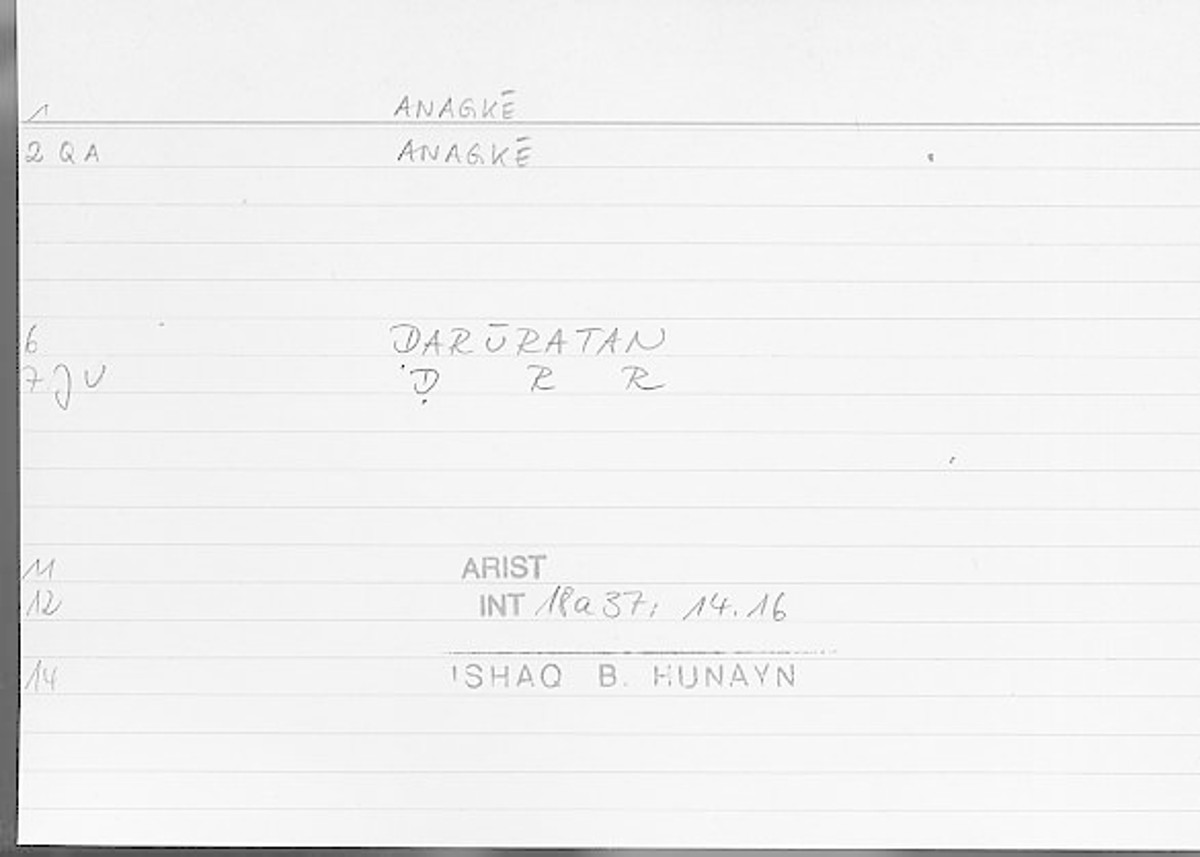 1 ANAGKĒ
2 QA ANAGKĒ
6 DARŪRATAN
7 JU Ḍ R R
11 ARIST
12 INT 18a37; 14.16
14 ISHAQ B. HUNAYN